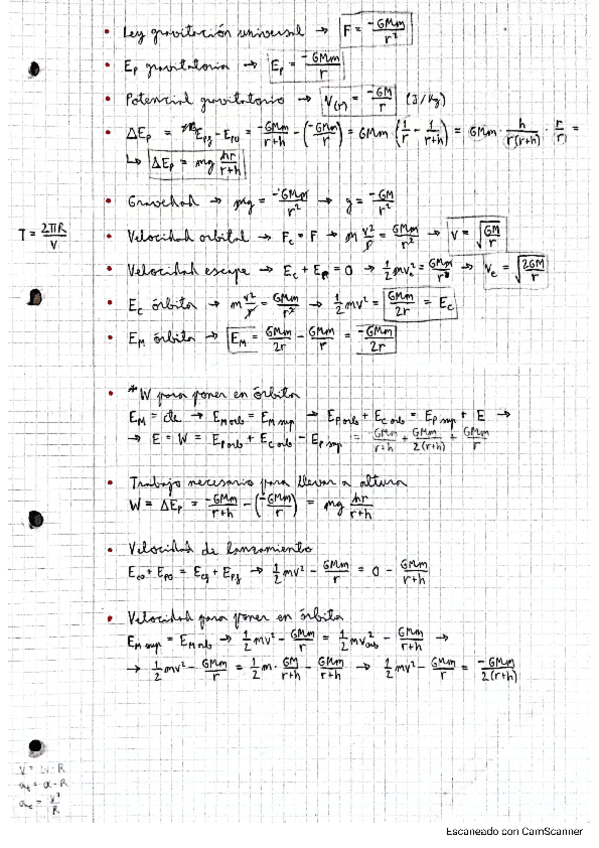 • Ley gravitación universal → F = -GMm/r²
• Ep gravitatoria → Ep = -GMm/r
• Potencial gravitatorio → V(r) = -GM/r (J/kg)
• ΔEp = Epf - Epo = -GMm/r+h - (-GMm/r) = GMm · (1/r - 1/r+h) = GMm · h/r(r+h) · r/r =
↳ ΔEp = mg hr/r+h
• Gravedad → mg = -GMm/r² → g = -GM/r²
T = 2πR/V
• Velocidad orbital → Fc = F → m v²/r = GMm/r² → V = √GM/r
• Velocidad escape → Ec + Ep = 0 → 1/2 mve² = GMm/r → Ve = √2GM/r
• Ec órbita → m v²/r = GMm/r² → 1/2 mv² = GMm/2r = Ec
• EM órbita → EM = GMm/2r - GMm/r = -GMm/2r
• *W para poner en órbita
EM = cte → EM orb = EM sup → Ep orb + Ec orb = Ep sup + E →
→ E = W = Ep orb + Ec orb - Ep sup = GMm/r+h + GMm/2(r+h) + GMm/r
• Trabajo necesario para llevar a altura
W = ΔEp = -GMm/r+h - (-GMm/r) = mg hr/r+h
• Velocidad de lanzamiento
Eco + Epo = Ecf + Epf → 1/2 mv² - GMm/r = 0 - GMm/r+h
• Velocidad para poner en órbita
EM sup = EM orb → 1/2 mv² - GMm/r = 1/2 mv²orb - GMm/r+h →
→ 1/2 mv² - GMm/r = 1/2 m · GM/r+h - GMm/r+h → 1/2 mv² - GMm/r = -GMm/2(r+h)
at = α · R
ac = v²/R
Escaneado con CamScanner